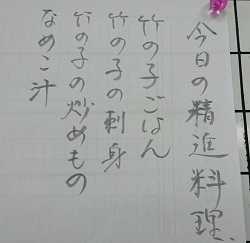 今日の精進料理、
竹の子ごはん
竹の子の刺身
竹の子の炒めもの
なめこ汁